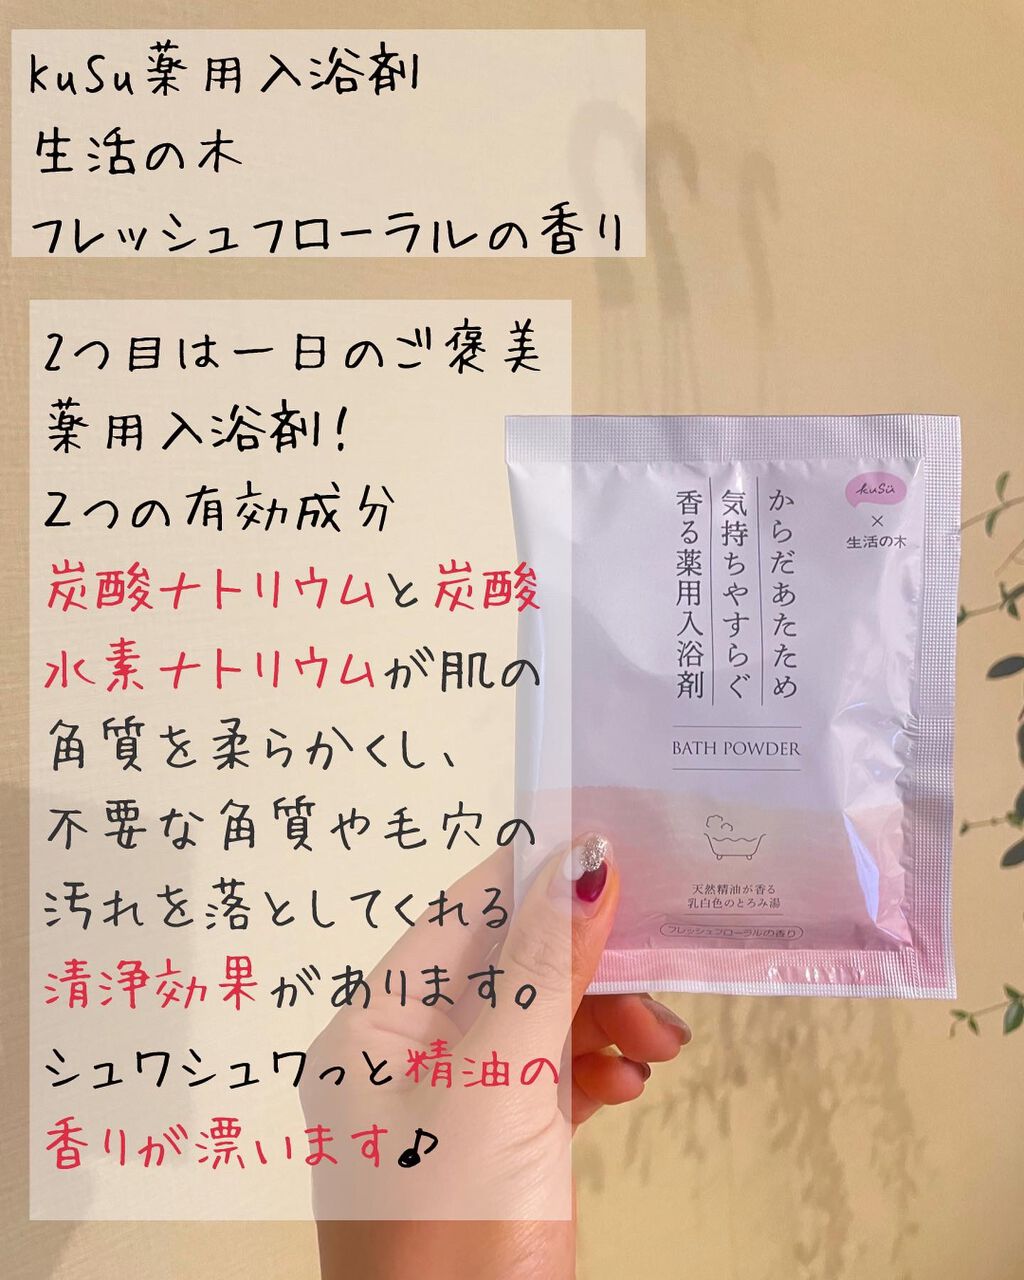 kuSu薬用入浴剤
生活の木
フレッシュフローラルの香り
2つ目は一日のご褒美
薬用入浴剤！
2つの有効成分
炭酸ナトリウムと炭酸
水素ナトリウムが肌の
角質を柔らかくし、
不要な角質や毛穴の
汚れを落としてくれる
清浄効果があります。
シュワシュワっと精油の
香りが漂います♪
kuSu
×
生活の木
からだあたため
気持ちやすらぐ
香る薬用入浴剤
BATH POWDER
天然精油が香る
乳白色のとろみ湯
フレッシュフローラルの香り